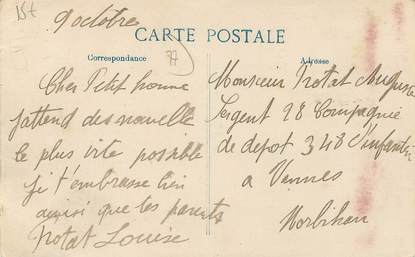 15t
9 octobre
CARTE POSTALE
77
Correspondance
Adresse
Cher Petit homme
j'attend des nouvelle
le plus vite possible
je t'embrasse bien
ainsi que tes parents
Notat Louise
Monsieur Notat Auguste
Sergent 28 Compagnie
de depot 348 d'infanterie
a Vannes
Morbihan